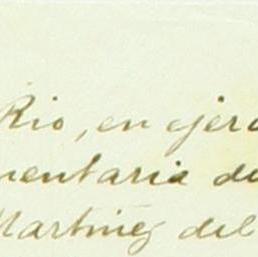 Rio, en ejerc
mentaria de
Martinez del